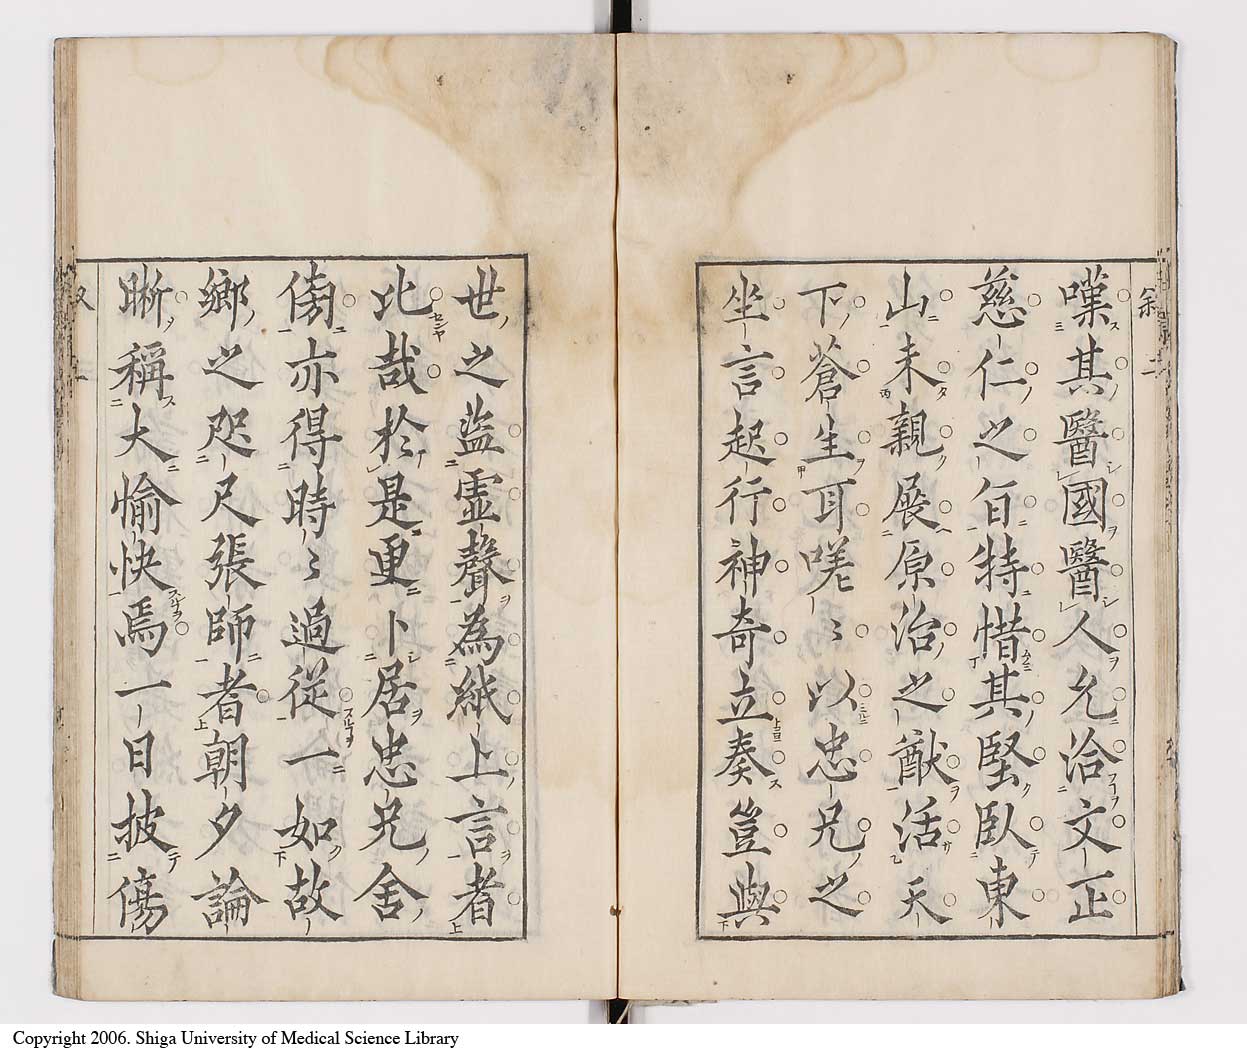 叙 二
嘆其醫國醫人允洽文正
慈仁之旨特惜其堅臥東
山未親展原治之猷活天
下蒼生耳嗟〻以忠兄之
坐言起行神奇立奏豈與
世之盜虛聲為紙上言者
比哉於是重卜居忠兄舍
傍亦得時〻過從一如故
鄉之咫尺張師者朝夕論
晰稱大愉快焉一日披傷
Copyright 2006. Shiga University of Medical Science Library